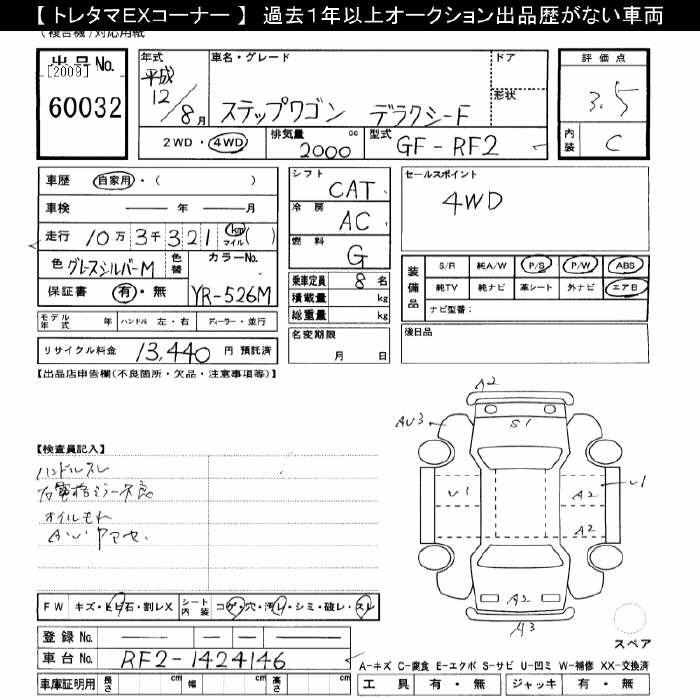 【トレタマEXコーナー】 過去1年以上オークション出品歴がない車両
(複合機)対応用紙
出品No.
[2009]
60032
年式
平成
12/8月
車名・グレード
ステップワゴン デラクシーF
ドア
形状
2WD・4WD
排気量 2000 cc
型式 GF-RF2
評価点
3.5
内装 C
車歴 自家用・( )
車検 年 月
走行 10万3千321 km マイル( )
色 グレースシルバーM 色替
カラーNo. YR-526M
保証書 有・無
モデル年式 年 ハンドル 左・右 ディーラー・並行
リサイクル料金 13,440 円 預託済
シフト CAT
冷房 AC
燃料 G
乗車定員 8 名
積載量 kg
総重量 kg
名変期限
月 日
セールスポイント
4WD
装備品
S/R 純A/W P/S P/W ABS
純TV 純ナビ 革シート 外ナビ エアB
ナビ型番:
後日品
【出品店申告欄(不良箇所・欠品・注意事項等)】
【検査員記入】
ハンドルスレ
右電格ミラー不良
オイルもれ
A2
AU3
S1
U1
A2
U1
A2
A2
A3
スペア
FW キズ・ヒビ石・割レX
シート内装 コゲ・穴・汚レ・シミ・破レ・スレ
登録No.
車台No. RF2-1424146
車庫証明用 長さ cm 幅 cm 高さ cm
A-キズ C-腐食 E-エクボ S-サビ U-凹ミ W-補修 XX-交換済
工具 有・無 ジャッキ 有・無